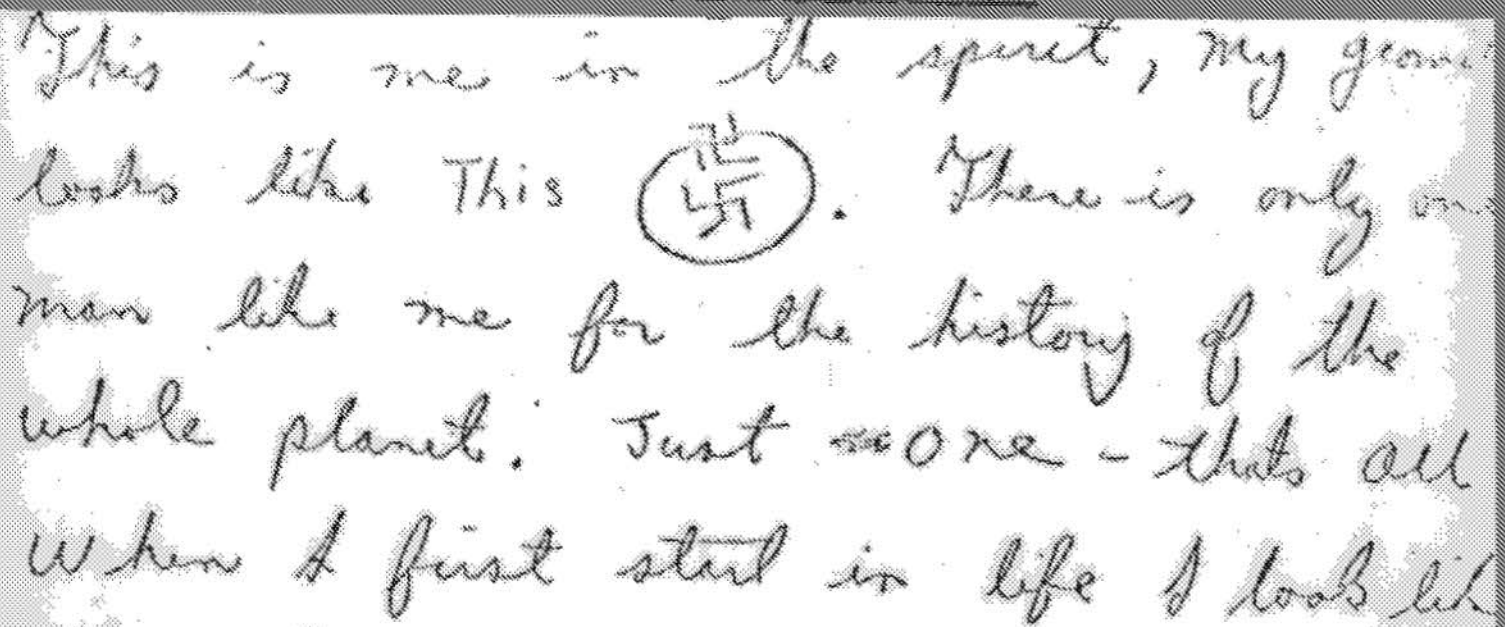 This is me in the spirit, my
looks like This . There is only
man like me for the history of the
whole planet. Just one - thats all
When I first start in life I look